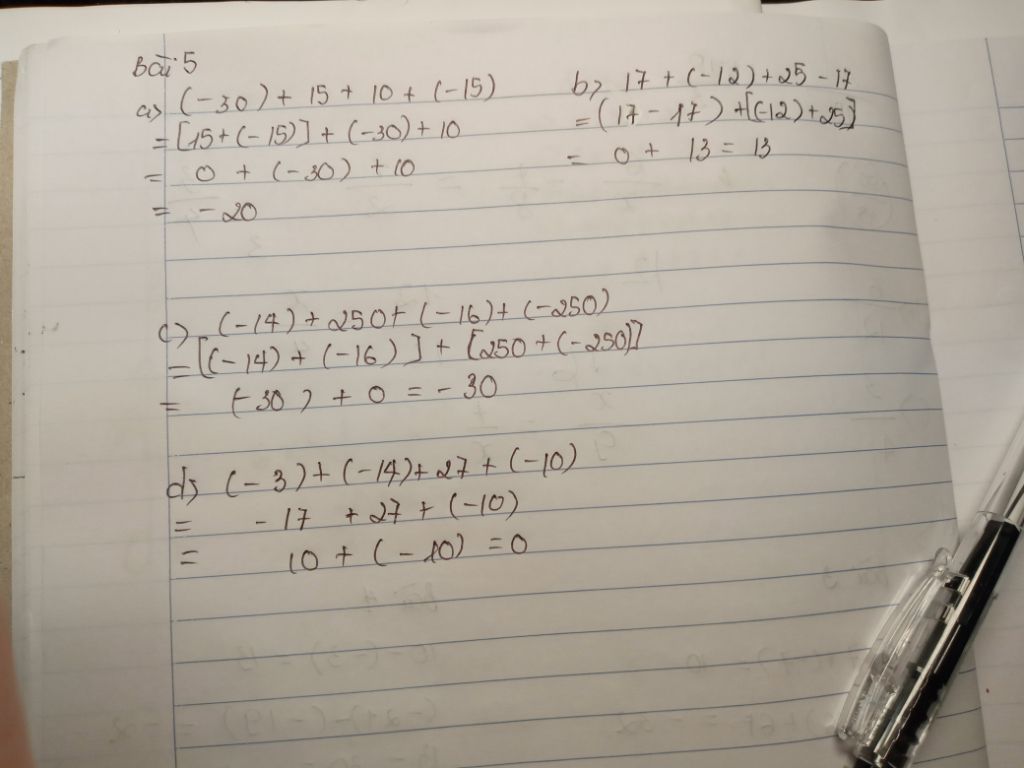 Bài 5
a) (-30) + 15 + 10 + (-15)
= [15+(-15)] + (-30) + 10
= 0 + (-30) + 10
= -20
b) 17 + (-12) + 25 - 17
= (17 - 17) + [(-12) + 25]
= 0 + 13 = 13
c) (-14) + 250 + (-16) + (-250)
= [(-14) + (-16)] + [250 + (-250)]
= (-30) + 0 = -30
d) (-3) + (-14) + 27 + (-10)
= -17 + 27 + (-10)
= 10 + (-10) = 0